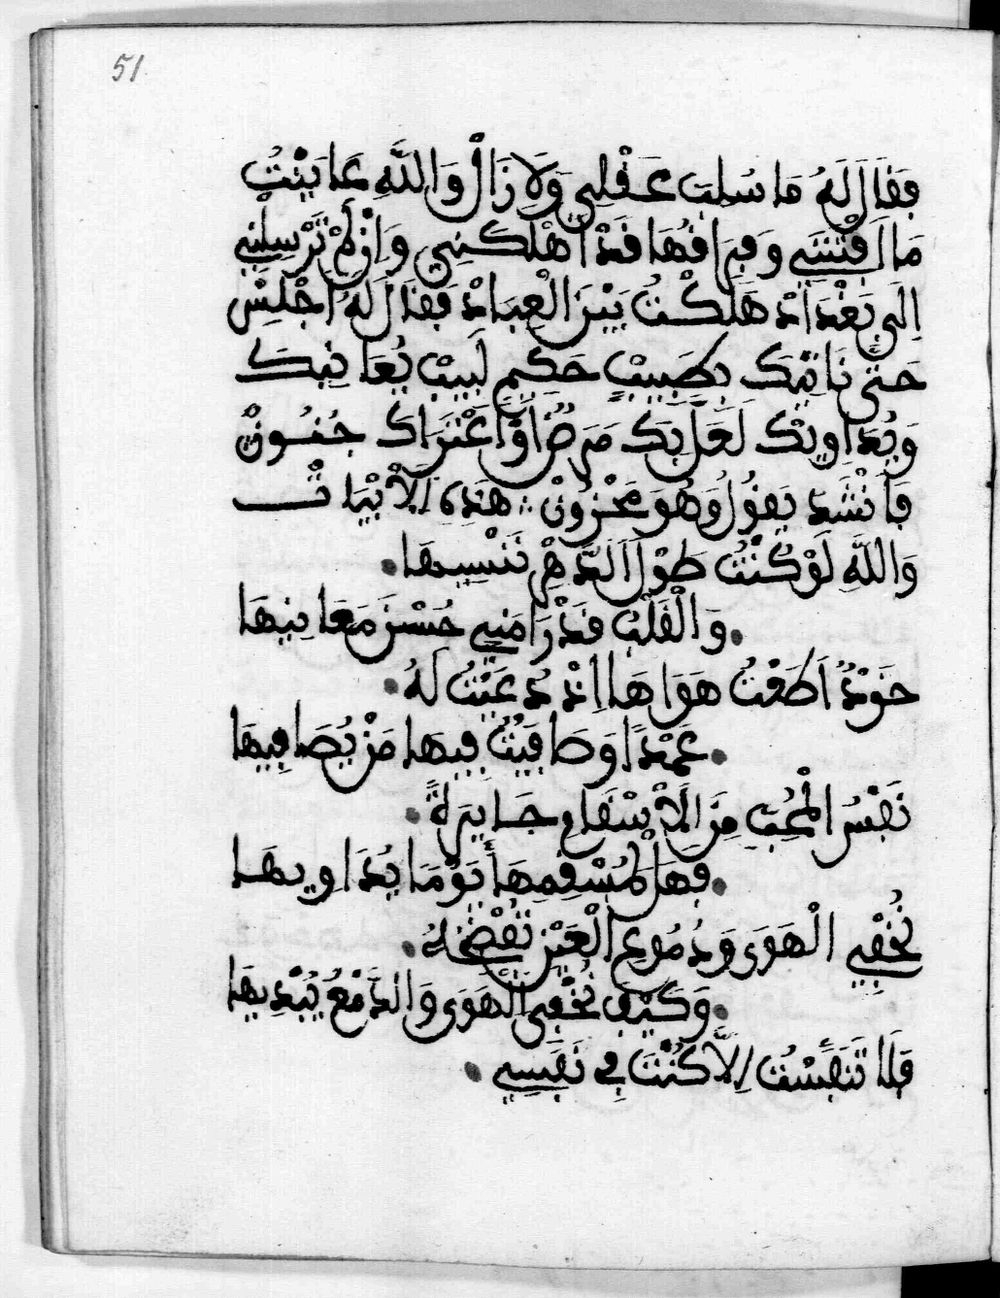 51
فَقَالَ لَهُ مَا سُلِبَ عَقْلِي وَلَا زَالْ وَاللَّهِ عَايَنْتُ
مَا أَفْتَنَنِي وَفِرَاقُهَا قَدْ أَهْلَكَنِي وَإِنْ لَمْ تَرْسِلْنِي
إِلَى بَغْدَادْ هَلَكْتُ بَيْنَ الْعِبَادْ فَقَالَ لَهُ اجْلِسْ
حَتَّى نَاتِيكَ بِطَبِيبٍ حَكِيمٍ لَبِيبْ يُعَاتِبُكَ
وَيُدَاوِيكْ لَعَلَّ بِكَ مَرَضٌ أَوْ اعْتَرَاكَ جُنُونْ
فَأَنْشَدَ يَقُولُ وَهُوَ مَحْزُونْ هَذِهِ الْأَبْيَاتْ
وَاللَّهِ لَوْ كُنْتُ طُولَ الدَّهْرِ نَنْسِيهَا
وَالْقَلْبُ قَدْ رَامَنِي حُسْنَ مَعَانِيهَا
خَوْدٌ أَطَعْتُ هَوَاهَا إِذْ دُعِيتُ لَهُ
عَمْدًا وَصَافَيْتُ فِيهَا مَنْ يُصَافِيهَا
نَفْسُ الْمُحِبِّ مِنَ الْأَسْقَامِ جَايِزَةٌ
فَهَلْ لِمُسْقِمِهَا يَوْمًا يُدَاوِيهَا
نُخْفِي الْهَوَى وَدُمُوعُ الْعَيْنِ تَفْضَحُهُ
وَكَيْفَ نُخْفِي الْهَوَى وَالدَّمْعُ يُبْدِيهَا
فَلَا تَنَفَّسْتُ إِلَّا كُنْتَ فِي نَفَسِي